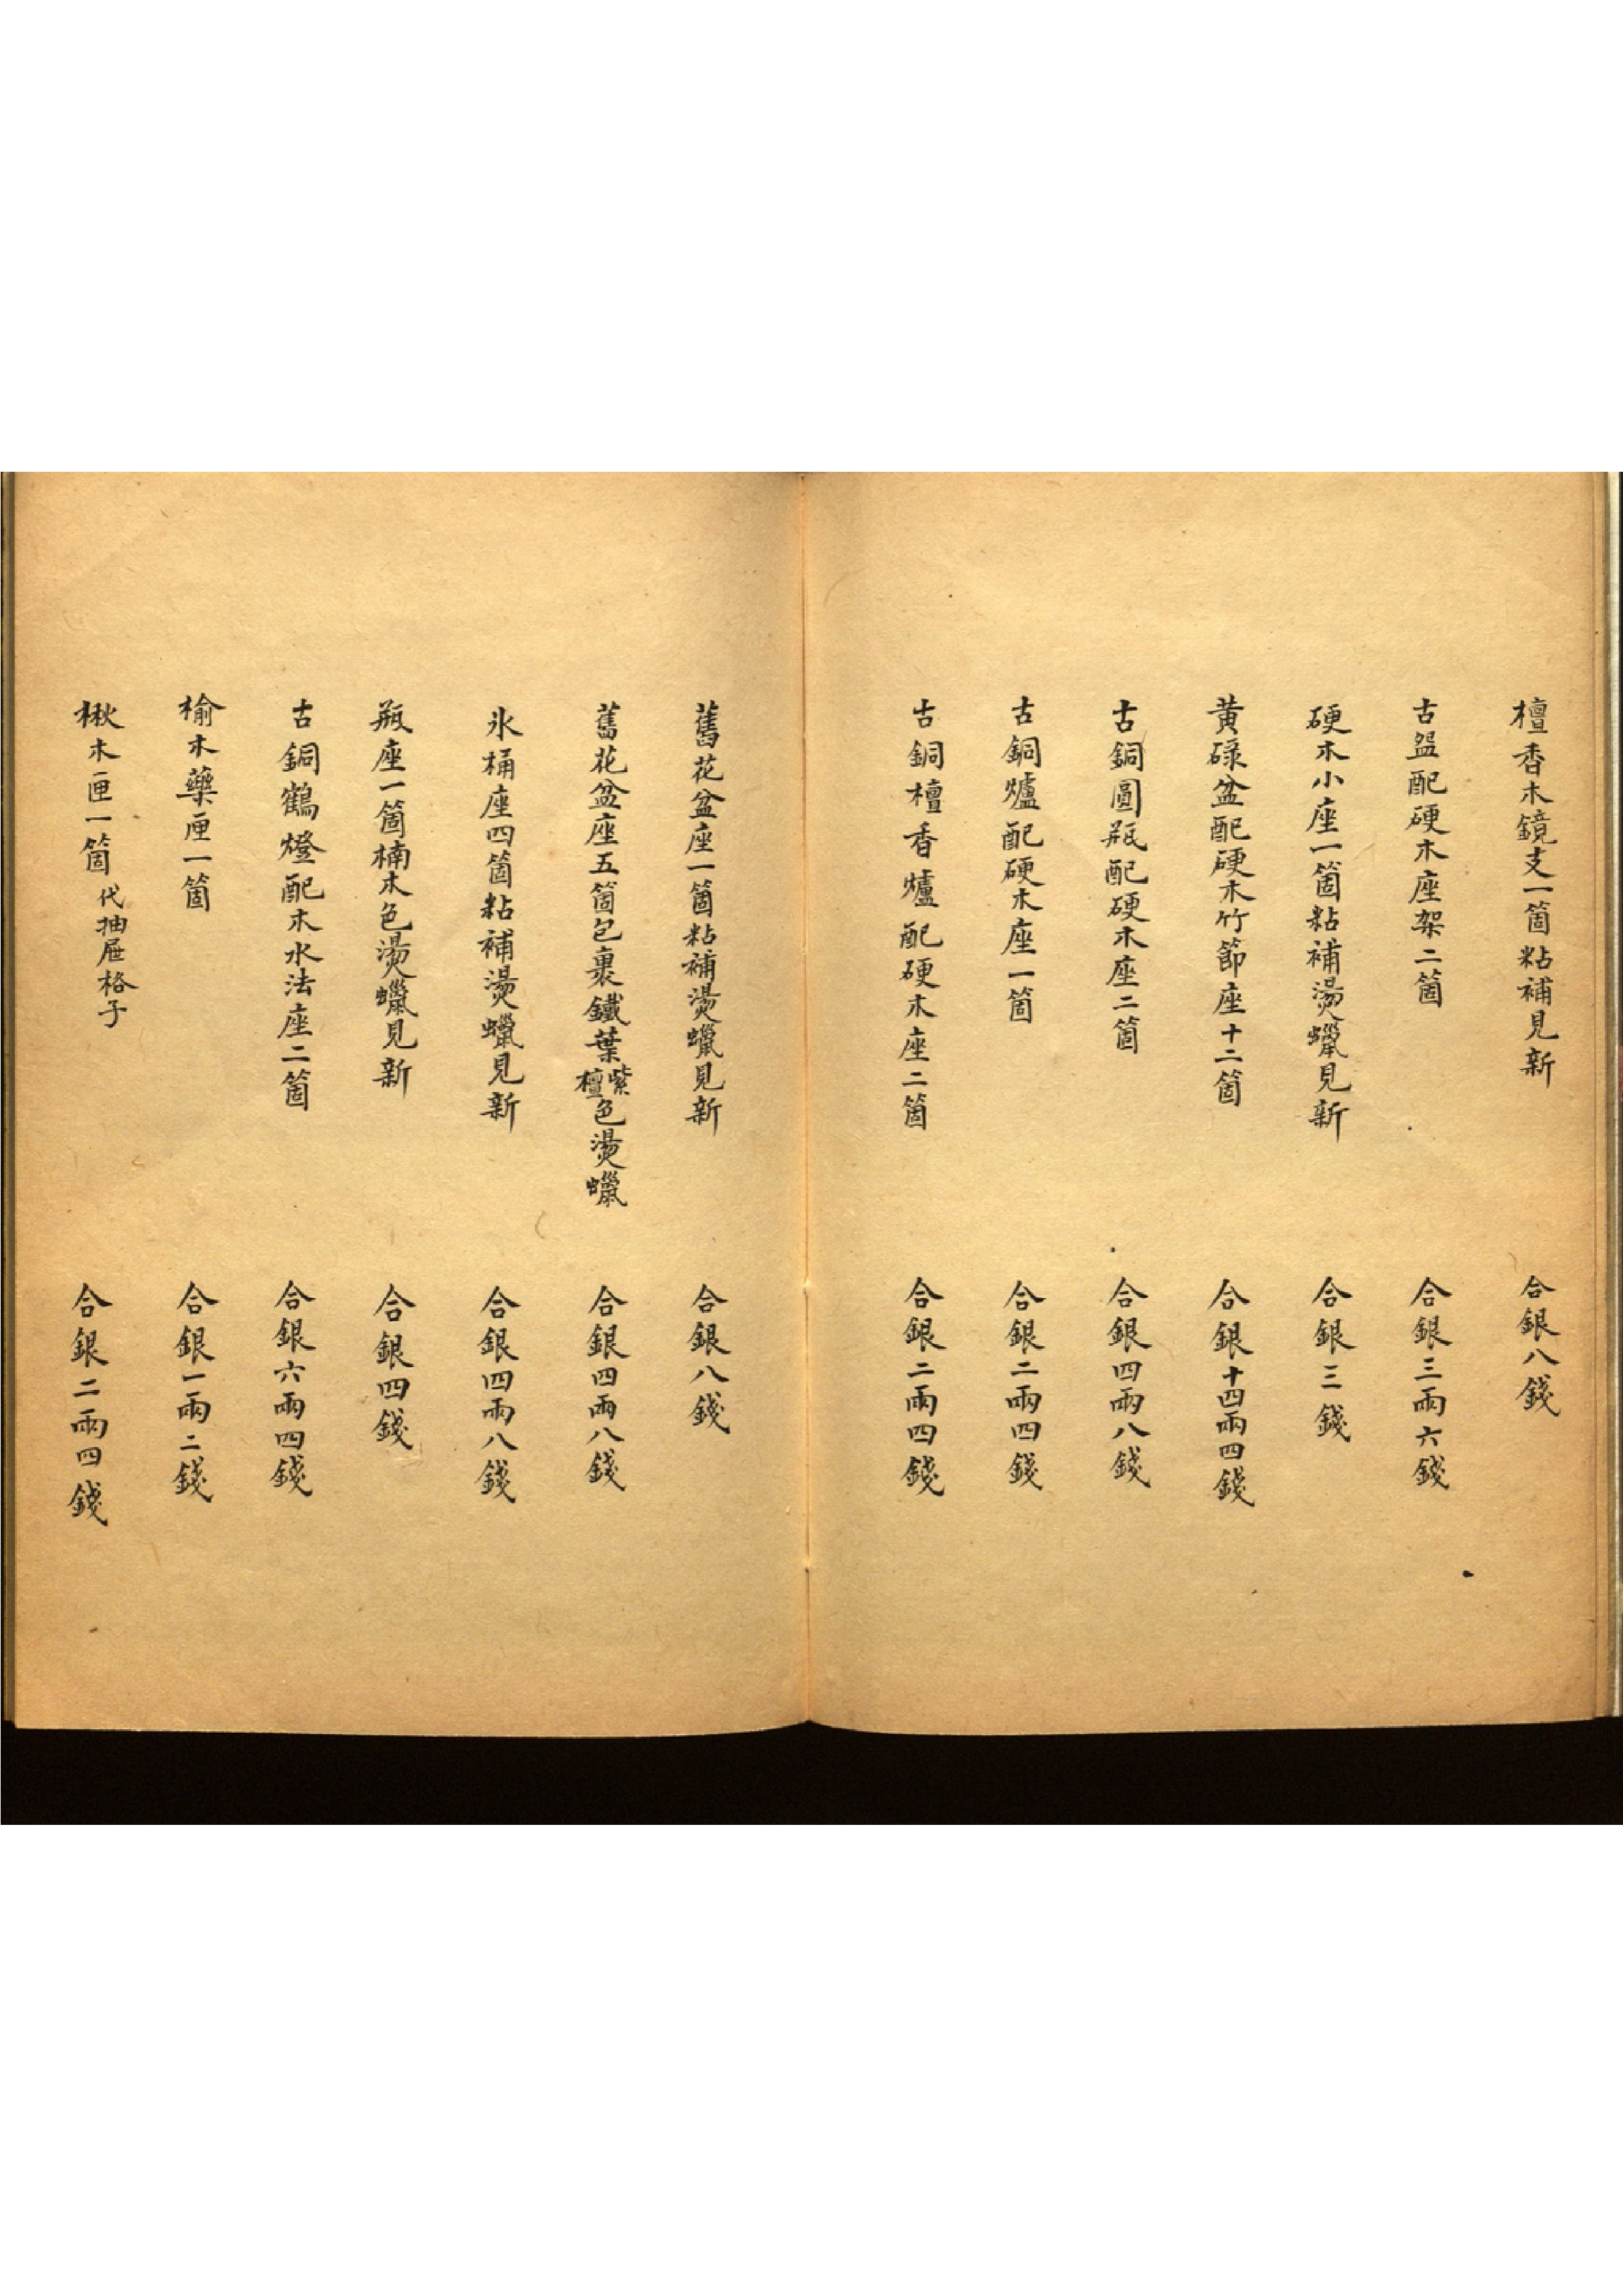 檀香木鏡支一箇粘補見新　合銀八錢
古盌配硬木座架二箇　合銀三兩六錢
硬木小座一箇粘補燙蠟見新　合銀三錢
黄碌盆配硬木竹節座十二箇　合銀十四兩四錢
古銅圓瓶配硬木座二箇　合銀四兩八錢
古銅爐配硬木座一箇　合銀二兩四錢
古銅檀香爐配硬木座二箇　合銀二兩四錢
舊花盆座一箇粘補燙蠟見新　合銀八錢
舊花盆座五箇包裹鐵葉紫檀色燙蠟　合銀四兩八錢
氷桶座四箇粘補燙蠟見新　合銀四兩八錢
瓶座一箇楠木色燙蠟見新　合銀四錢
古銅鶴燈配木水法座二箇　合銀六兩四錢
榆木藥匣一箇　合銀一兩二錢
楸木匣一箇代抽屜格子　合銀二兩四錢